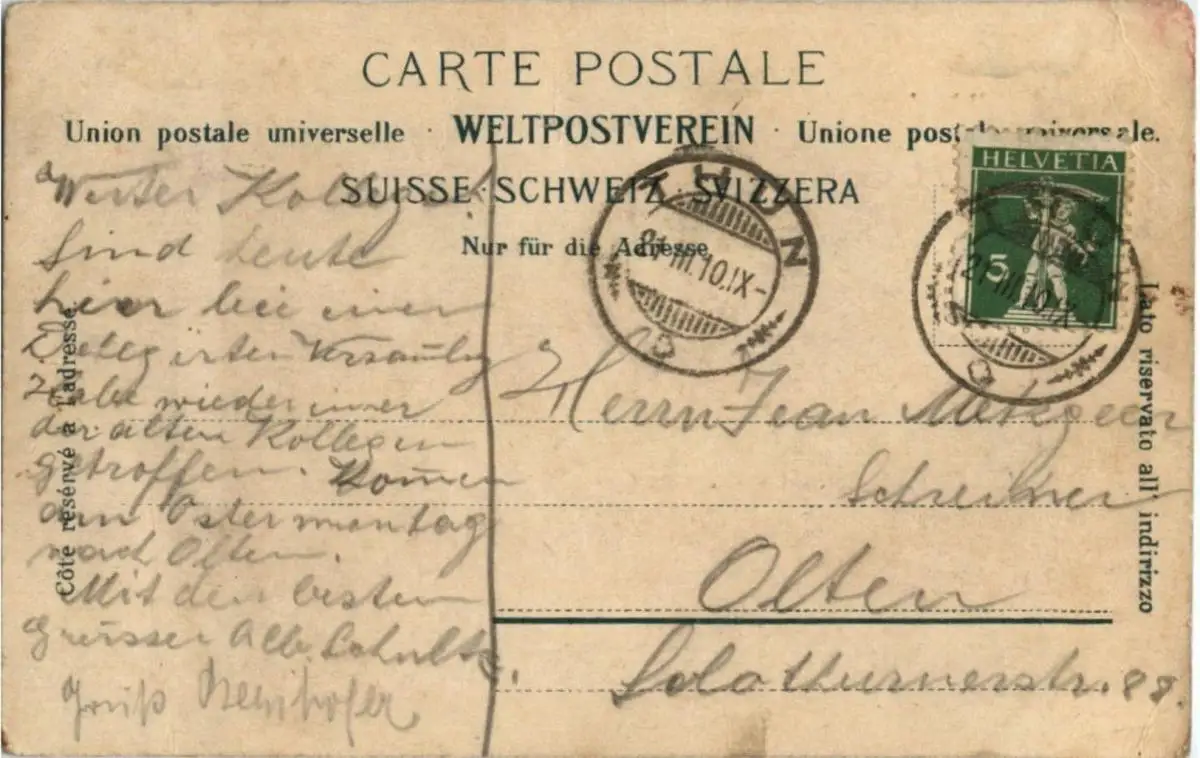 CARTE POSTALE
Union postale universelle · WELTPOSTVEREIN · Unione postale universale.
SUISSE · SCHWEIZ · SVIZZERA
Nur für die Adresse
Côté réservé à l'adresse
Lato riservato all' indirizzo
HELVETIA
5
THUN
21.III.10.IX-
THUN
21.III.10.IX
Werter Kollege!
Sind heute
hier bei einer
Delegierten
Habe wieder einer
der alten Kollegen
getroffen. Komen
am Ostermontag
nach Olten.
Mit den besten
Grüsser Alb. Schultz.
Gruß
Herrn Jean Metzgeer
Schreiner
Olten
Solothurnerstr. 88.